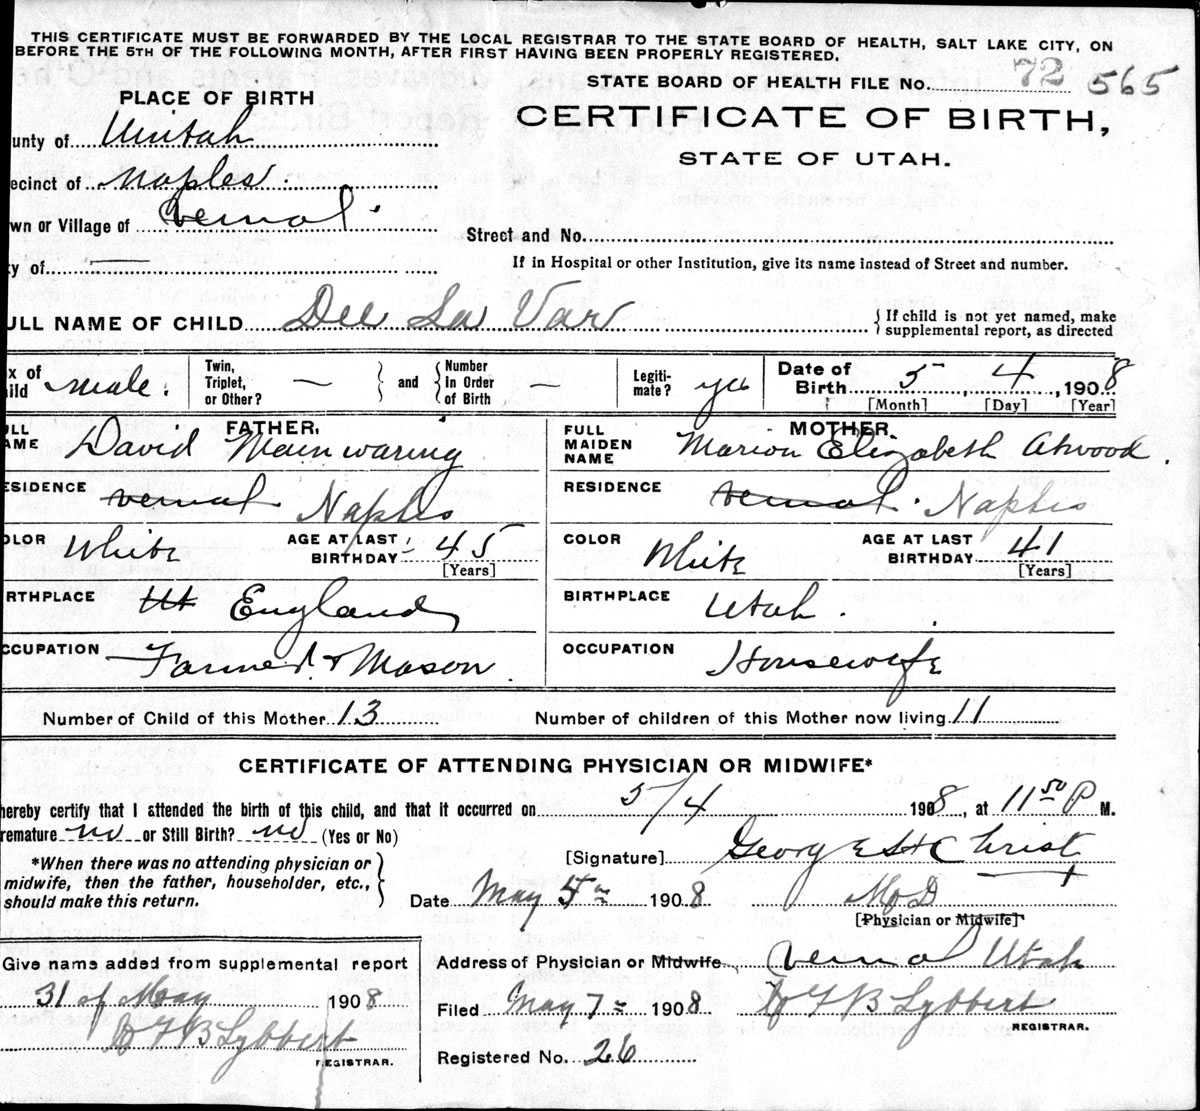 THIS CERTIFICATE MUST BE FORWARDED BY THE LOCAL REGISTRAR TO THE STATE BOARD OF HEALTH, SALT LAKE CITY, ON
BEFORE THE 5TH OF THE FOLLOWING MONTH, AFTER FIRST HAVING BEEN PROPERLY REGISTERED.
STATE BOARD OF HEALTH FILE No. 72 565
PLACE OF BIRTH
CERTIFICATE OF BIRTH,
STATE OF UTAH.
unty of Uintah
ecinct of Naples.
wn or Village of Vernal.
Street and No.
ty of —
If in Hospital or other Institution, give its name instead of Street and number.
ULL NAME OF CHILD Dee La Var
{ If child is not yet named, make supplemental report, as directed
x of ild male. Twin, Triplet, or Other? — } and { Number In Order of Birth — Legiti-mate? yes Date of Birth 5, 4, 1908
[Month] [Day] [Year]
FATHER. MOTHER.
ULL AME David Mainwaring FULL MAIDEN NAME Marion Elizabeth Atwood.
ESIDENCE Vernal Naples RESIDENCE Vernal. Naples
OLOR White AGE AT LAST BIRTHDAY 45 [Years] COLOR White AGE AT LAST BIRTHDAY 41 [Years]
RTHPLACE Ut England BIRTHPLACE Utah.
CCUPATION Farmer & Mason. OCCUPATION Housewife
Number of Child of this Mother 13 Number of children of this Mother now living 11
CERTIFICATE OF ATTENDING PHYSICIAN OR MIDWIFE*
hereby certify that I attended the birth of this child, and that it occurred on 5/4 1908, at 11 50 P M.
remature no or Still Birth? no (Yes or No)
*When there was no attending physician or midwife, then the father, householder, etc., should make this return. }
[Signature] George St Christ
Date May 5th 1908 M D
[Physician or Midwife]
Give name added from supplemental report
31 of May 1908
Address of Physician or Midwife Vernal Utah
Filed May 7 1908 C F B Lybbert
REGISTRAR.
C F B Lybbert
REGISTRAR.
Registered No. 26